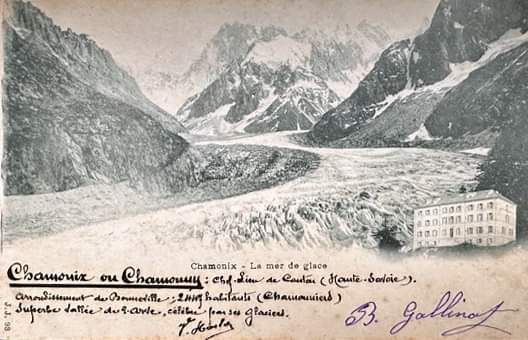 Chamonix - La mer de glace
Chamonix ou Chamouny : Chef-Lieu de Canton (Haute-Savoie).
Arrondissement de Bonneville : habitants (Chamoniards)
Superbe Vallée de l'Arve, célèbre par ses Glaciers.
B. Gallinot
J.J. 98